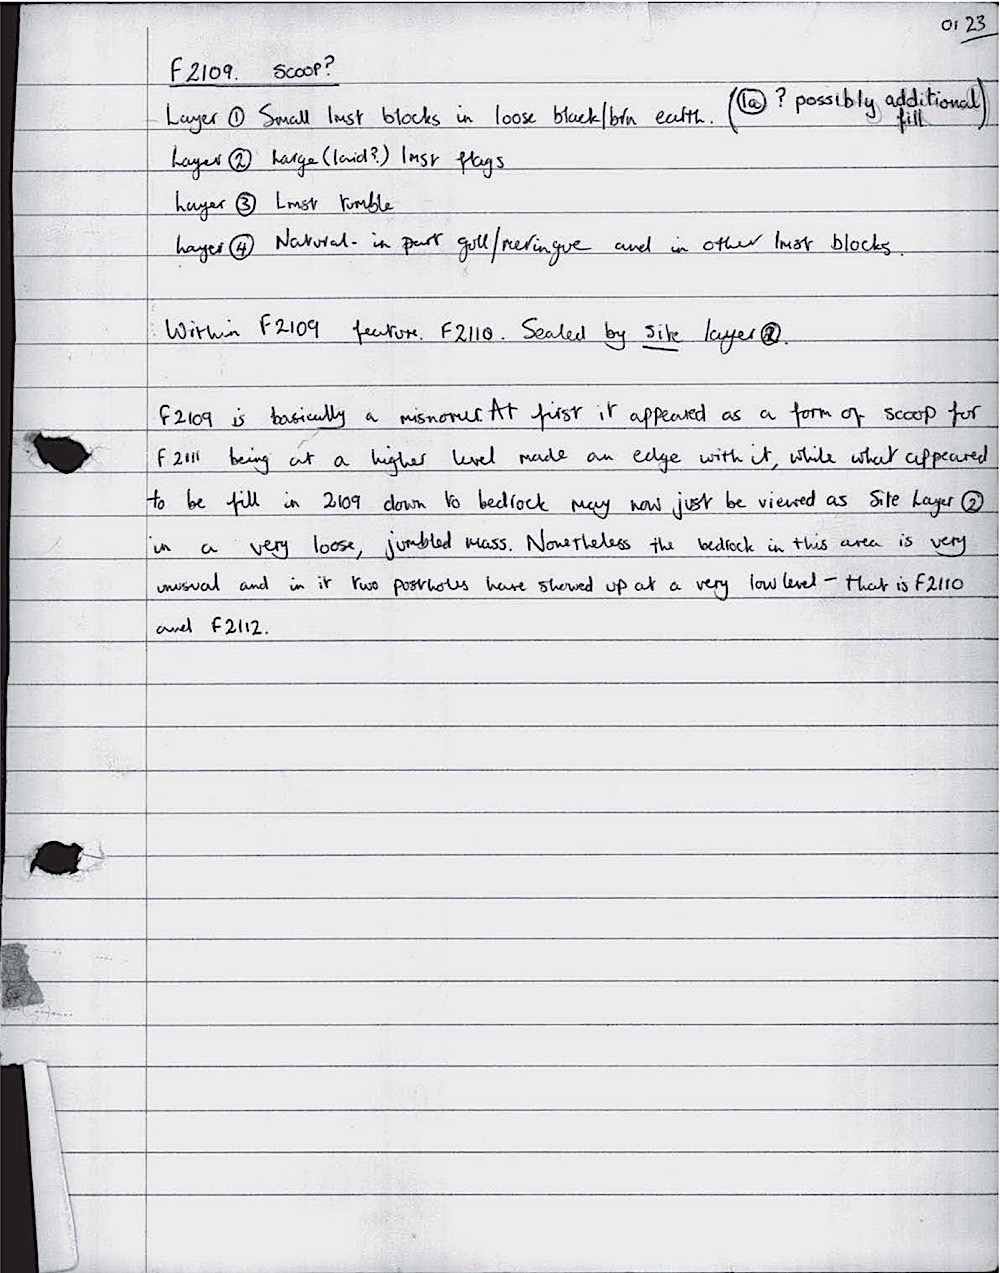 0123
F2109. Scoop?
Layer ① Small lmst blocks in loose black/brn earth. (⑴a ? possibly additional fill)
Layer ② Large (laid?) lmst flags
Layer ③ Lmst tumble
Layer ④ Natural - in part gull/meringue and in other lmst blocks.
Within F2109 feature. F2110. Sealed by Site layer ②.
F2109 is basically a misnomer. At first it appeared as a form of scoop for
F2111 being at a higher level made an edge with it, while what appeared
to be fill in 2109 down to bedrock may now just be viewed as Site Layer ②
in a very loose, jumbled mass. Nonetheless the bedrock in this area is very
unusual and in it two postholes have showed up at a very low level - that is F2110
and F2112.